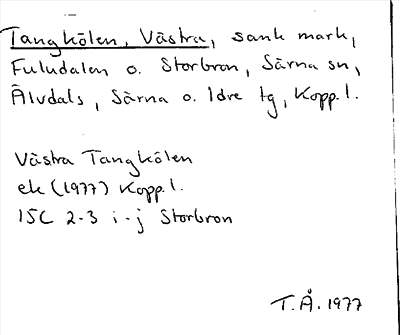 Tangkölen, Västra, sank mark,
Fuludalen o. Storbron, Särna sn,
Älvdals, Särna o. Idre tg, Kopp.l.
Västra Tangkölen
ek (1977) Kopp.l.
15C 2-3 i-j Storbron
T.Å. 1977